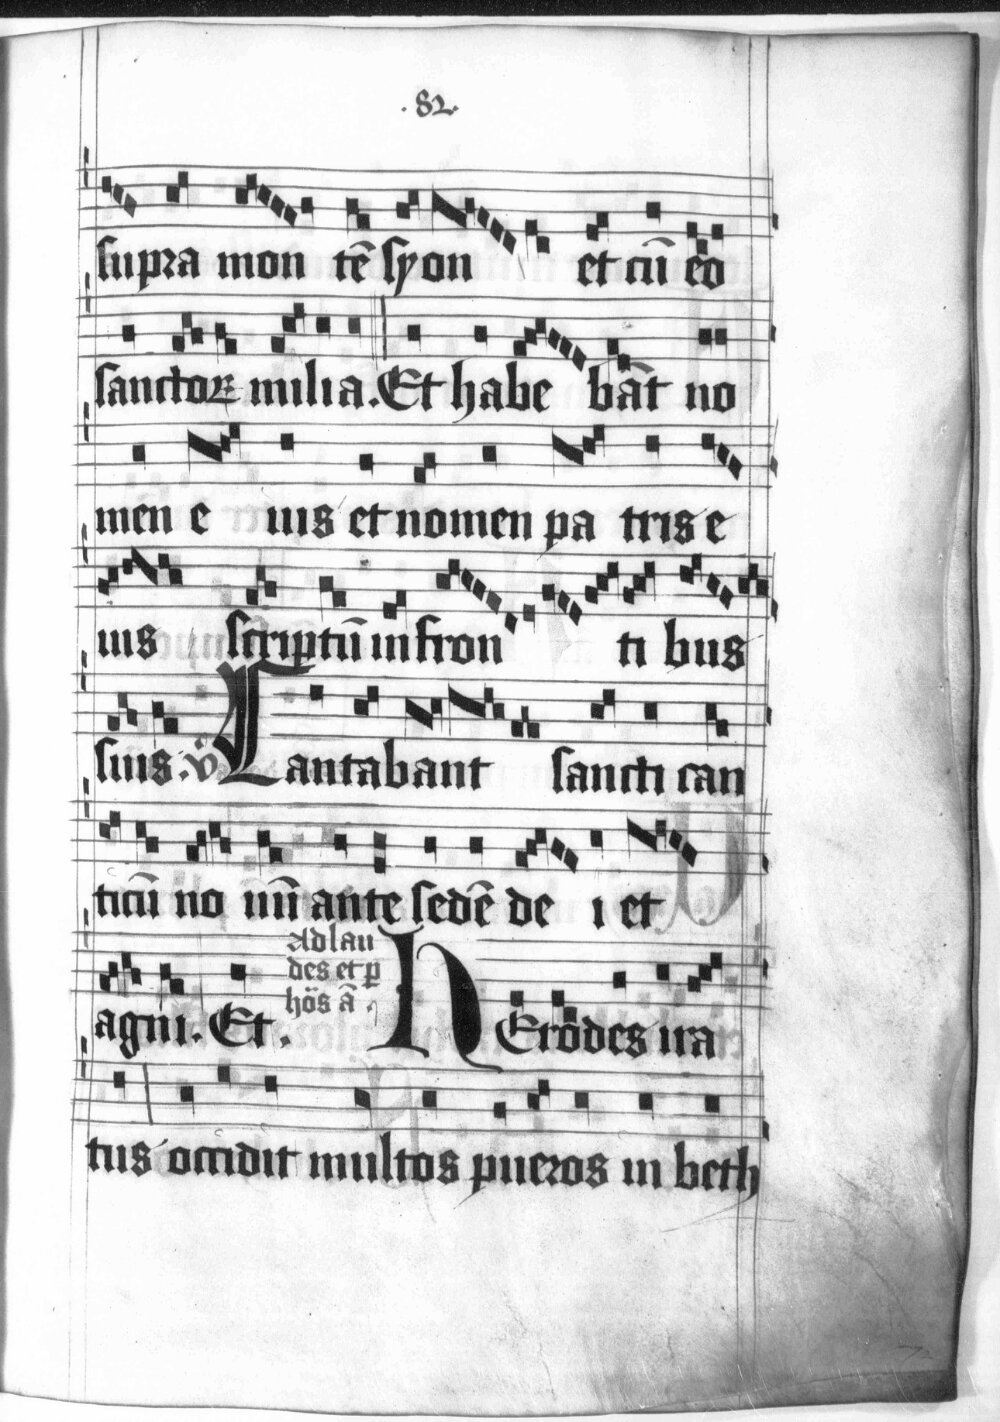 .82.
supra mon tē syon et cū eo
sanctoꝝ milia. Et habe bāt no
men e ius et nomen pa tris e
ius scriptū in fron ti bus
suis. v̊ Cantabant sancti can
ticū no uū ante sedē de i et
agni. Et.
Ad lau
des et p
hōs ā.
HErodes ira
tus occidit multos pueros in beth